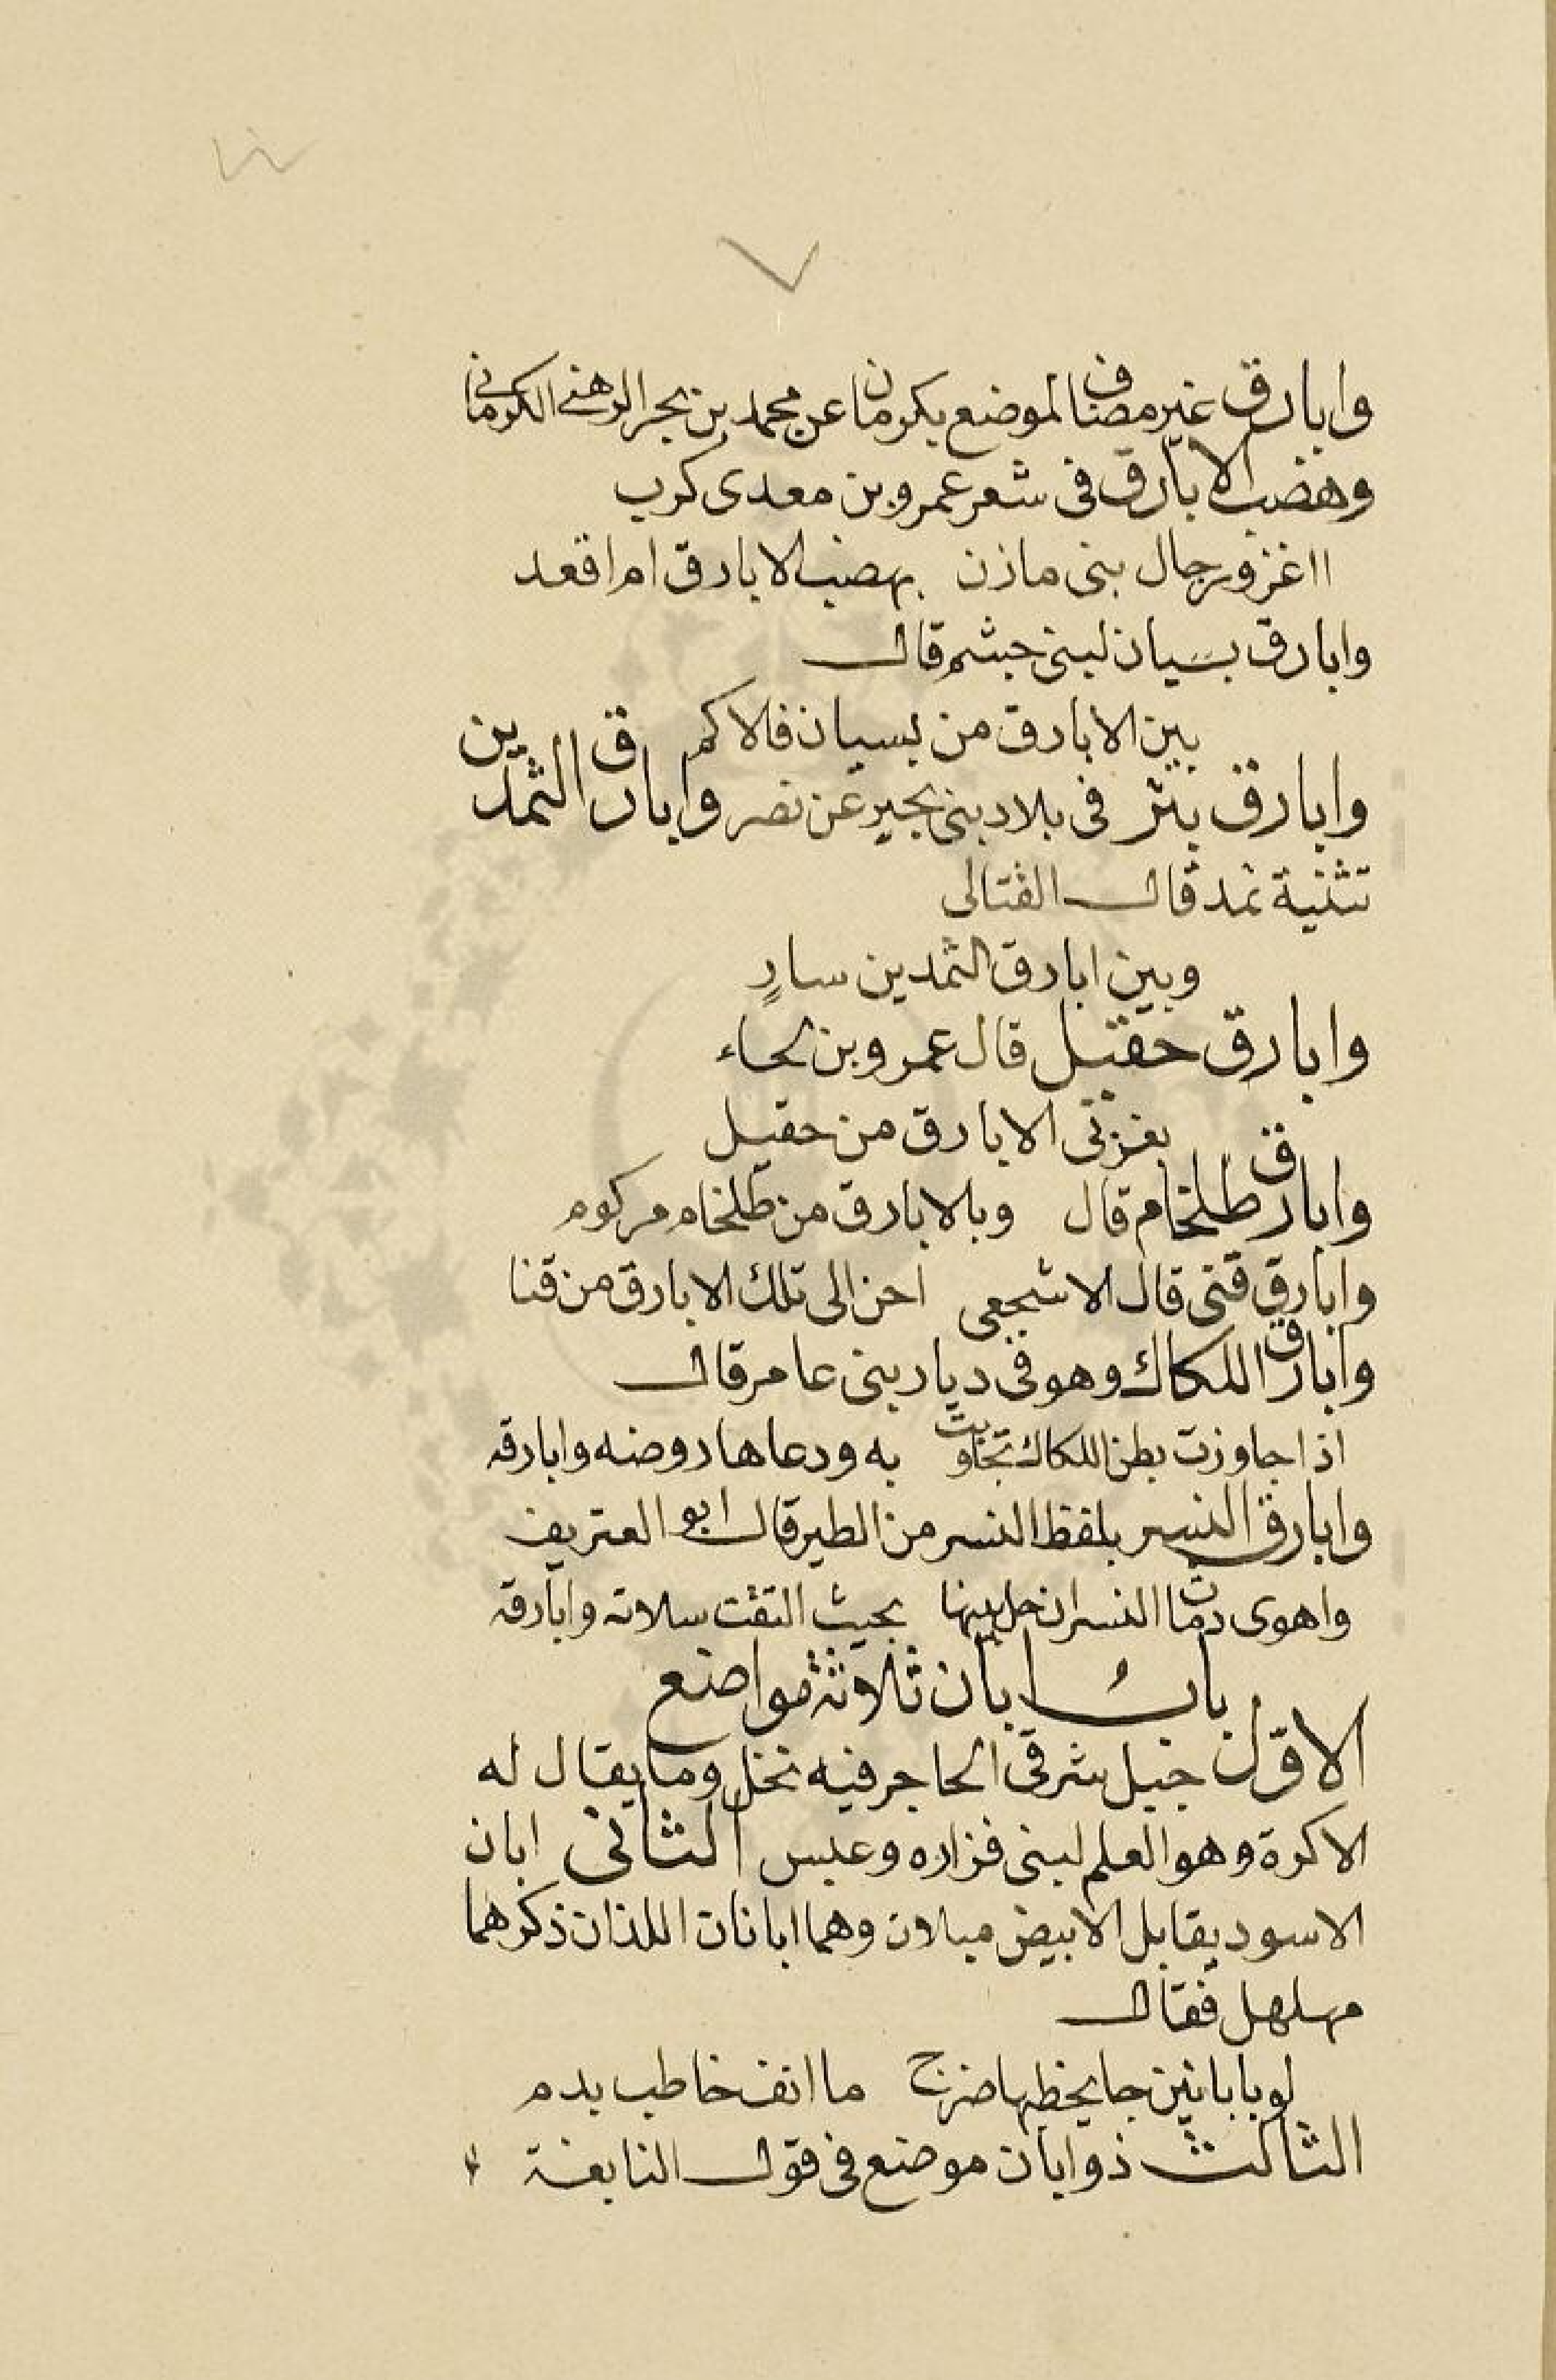 ٧
وابارق غير مضاف لموضع بكرمان عن محمد بن بحر الرهنى الكرمانى
وهضب الابارق فى شعر عمرو بن معدى كرب
ااغزو رجال بنى مازن بهضب الابارق ام اقعد
وابارق بسيان لبنى جشم قال
بين الابارق من بسيان فالاكم
وابارق بيتر فى بلاد بنى بحير عن نصر وابارق الثمدين
تثنية ثمد قال القتالى
وبين ابارق الثمدين سارٍ
وابارق حقيل قال عمرو بن لجاء
بغزتى الابارق من حقيل
وابارق طلخام قال وبالابارق من طلخام مركوم
وابارق قنى قال الاشجعى احن الى تلك الابارق من قنا
وابارق اللكاك وهو فى ديار بنى عامر قال
اذا جاوزت بطن اللكاك تجاوبت به ودعاها روضه وابارقه
وابارق النسر بلفظ النسر من الطير قال ابو العتريف
واهوى دماث النسران حل بينها بحيث التقت سلانه وابارقه
باب ابان ثلاثة مواضع
الاول جبل شرقى الحاجر فيه نخل وما يقال له
الاكرة وهو العلم لبنى فزاره وعبس الثانى ابان
الاسود يقابل الابيض ميلان وهما ابانان اللذان ذكرهما
مهلهل فقال
لو بابانين جا يخطبها ضرج ما انف خاطب بدم
الثالث ذو ابان موضع فى قول النابغة